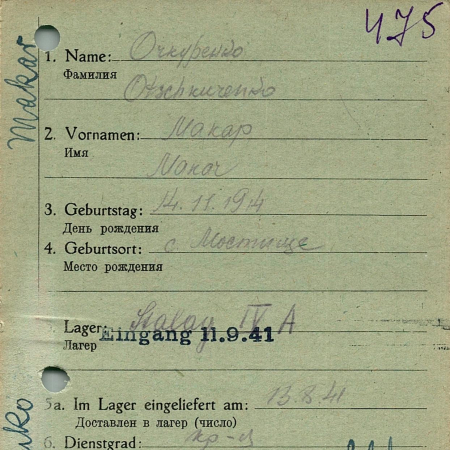 475
Makar
1. Name: Очкуренко
Фамилия
2. Vornamen: Макар
Имя
Makar
3. Geburtstag: 14. 11. 1914
День рождения
4. Geburtsort: с. Мостище
Место рождения
Lager: Stalag IV A
Лагер
Eingang 11.9.41
5a. Im Lager eingeliefert am: 13.8.41
Доставлен в лагер (число)
6. Dienstgrad: кр-ц